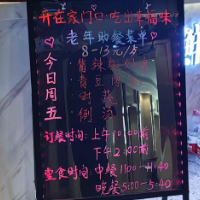 开在家门口·吃出幸福味
老年助餐菜单
8-13元/份
今日周五
订餐时间:上午10:00前
下午2:00前
堂食时间:中餐11:00-11:40
晚餐5:00-5:40